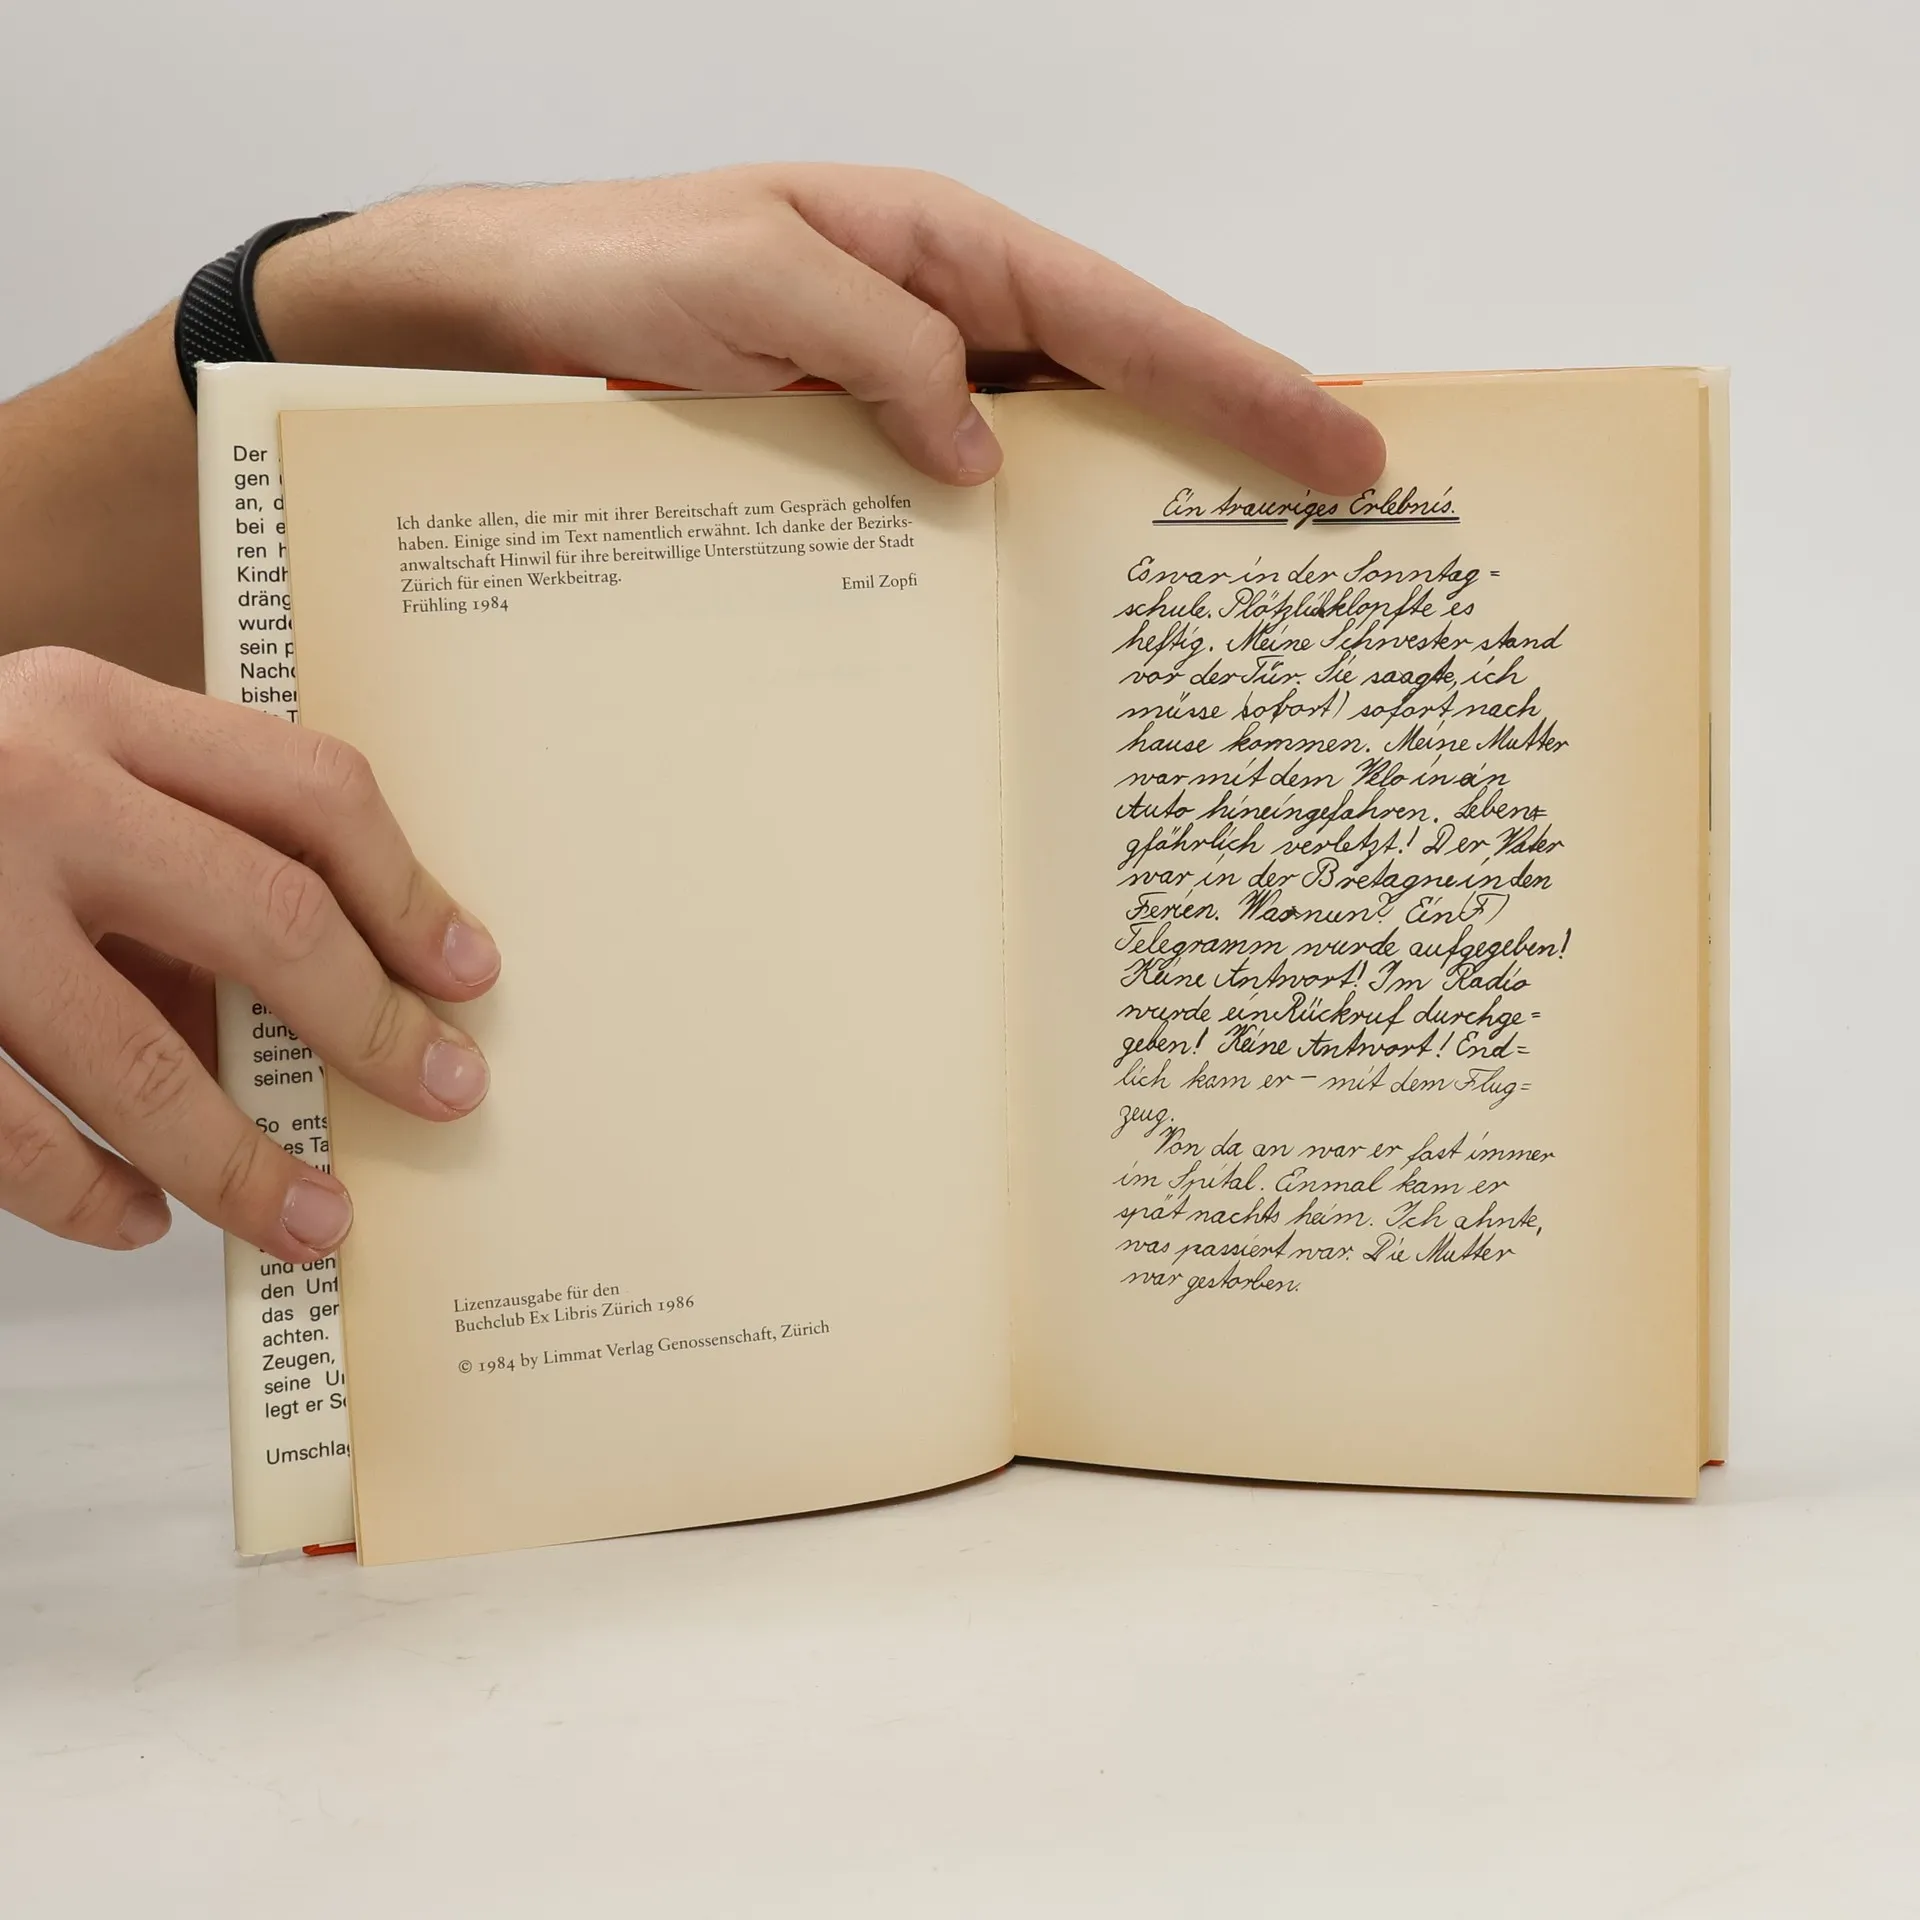 Der
gen
an, d
bei e
ren h
Kindh
dräng
wurde
sein p
Nachd
bisher
dung
seinen
seinen
So ents
es Ta
und den
den Unf
das ger
achten.
Zeugen,
seine Un
legt er Se
Umschlag
Ich danke allen, die mir mit ihrer Bereitschaft zum Gespräch geholfen
haben. Einige sind im Text namentlich erwähnt. Ich danke der Bezirks-
anwaltschaft Hinwil für ihre bereitwillige Unterstützung sowie der Stadt
Zürich für einen Werkbeitrag. Emil Zopfi
Frühling 1984
Lizenzausgabe für den
Buchclub Ex Libris Zürich 1986
© 1984 by Limmat Verlag Genossenschaft, Zürich
Ein trauriges Erlebnis.
Es war in der Sonntag=
schule. Plötzlich klopfte es
heftig. Meine Schwester stand
vor der Tür. Sie saagte, ich
müsse (sofort) sofort nach
hause kommen. Meine Mutter
war mit dem Velo in ein
Auto hineingefahren. Lebens=
gfährlich verletzt! Der Vater
war in der Bretagne in den
Ferien. Was nun? Ein (F)
Telegramm wurde aufgegeben!
Keine Antwort! Im Radio
wurde ein Rückruf durchge=
geben! Keine Antwort! End=
lich kam er – mit dem Flug=
zeug.
Von da an war er fast immer
im Spital. Einmal kam er
spät nachts heim. Ich ahnte,
was passiert war. Die Mutter
war gestorben.